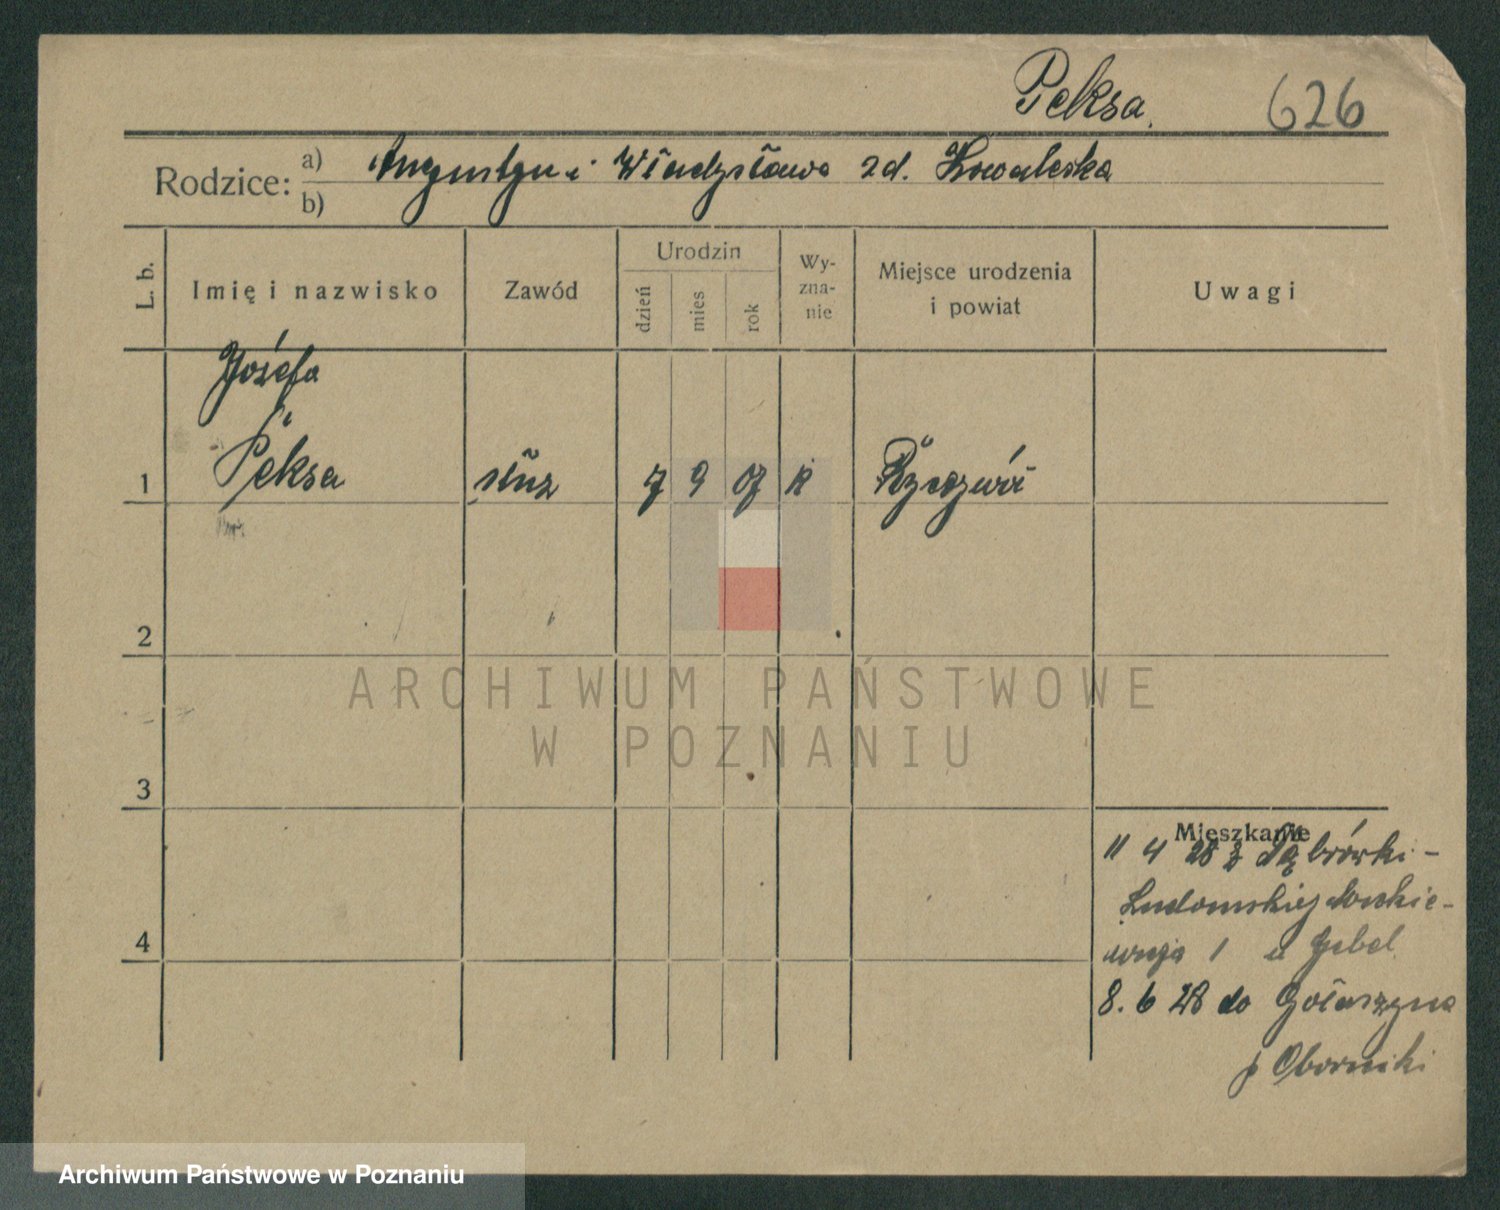 Peksa.
626
Rodzice:
a) Augustyn i Władysława zd. Kowalska
b)
L. b.
Imię i nazwisko
Zawód
Urodzin
dzień
mies
rok
Wy-
zna-
nie
Miejsce urodzenia
i powiat
Uwagi
Józefa
1 Peksa służ 7 9 07 R
2
3
4
Mieszkanie
11 4 28 z Dąbrówki-
Ludomskiej
1 u Gebel
8. 6 28 do Gołaszyna
p Oborniki
ARCHIWUM PAŃSTWOWE
W POZNANIU
Archiwum Państwowe w Poznaniu